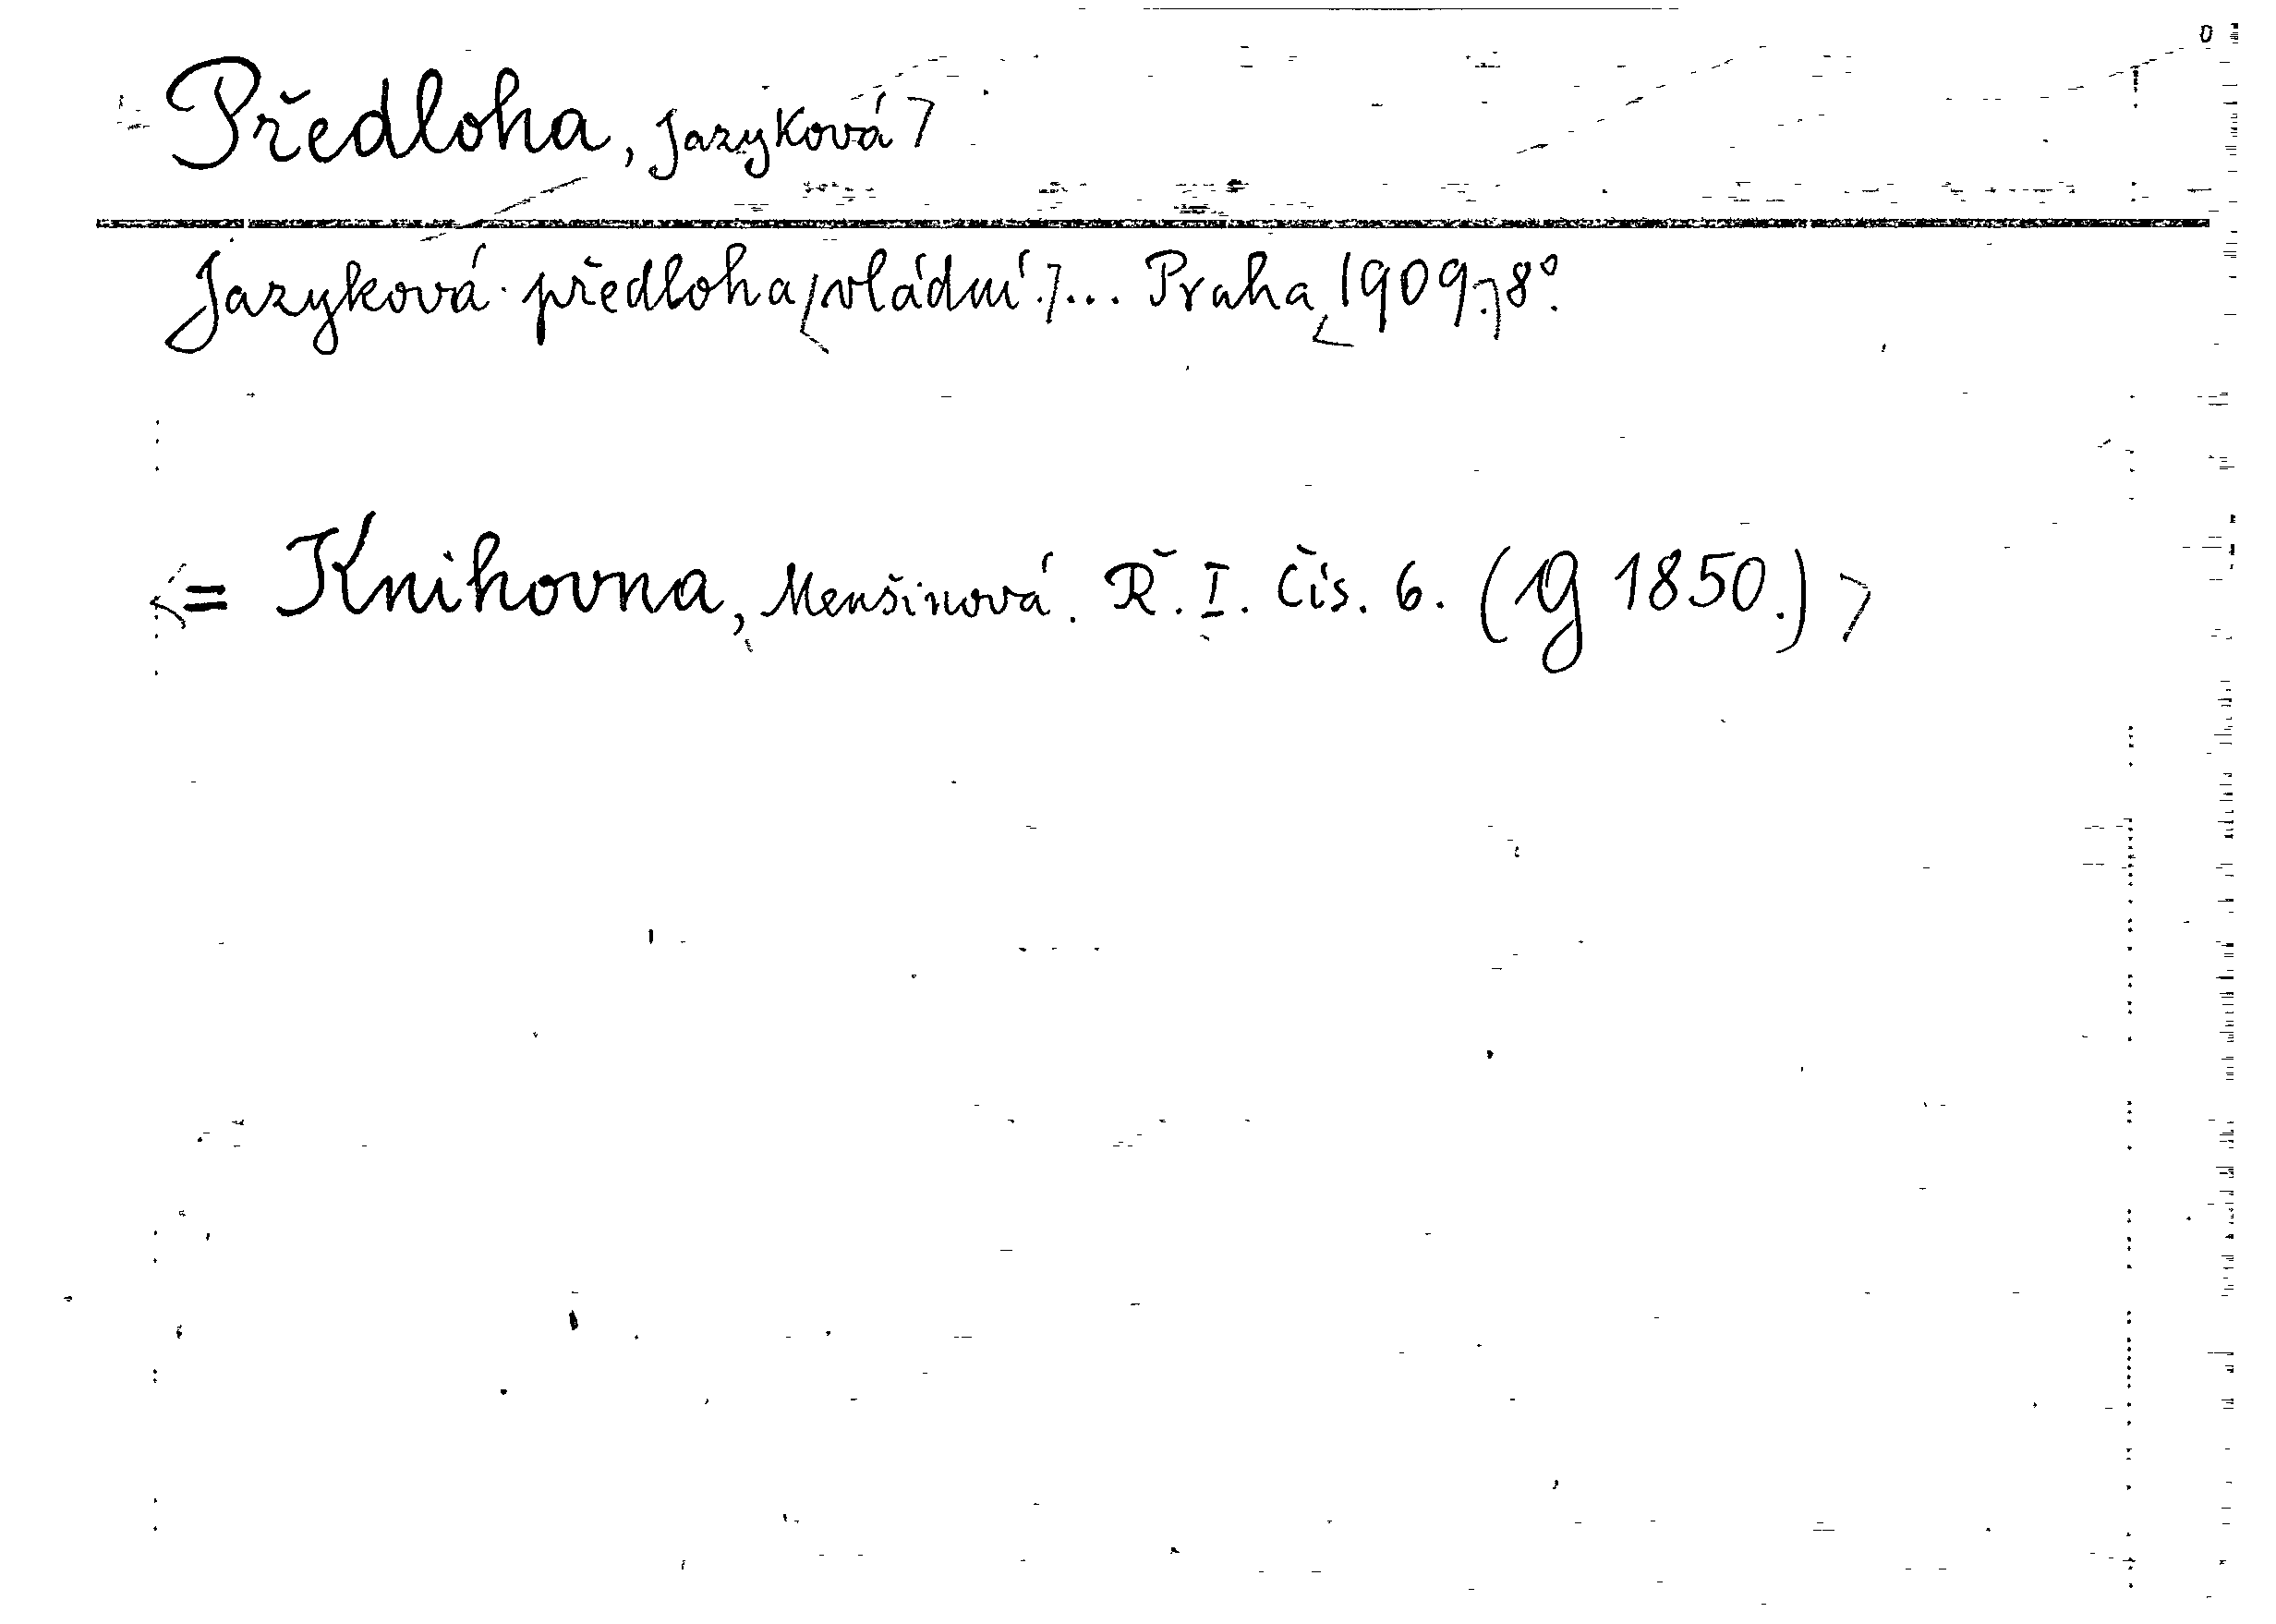 Předloha, Jazyková
Jazyková předloha vládní ... Praha, 1909. 8°.
= Knihovna, Menšinová. Ř. I. čís. 6. (G 1850.)